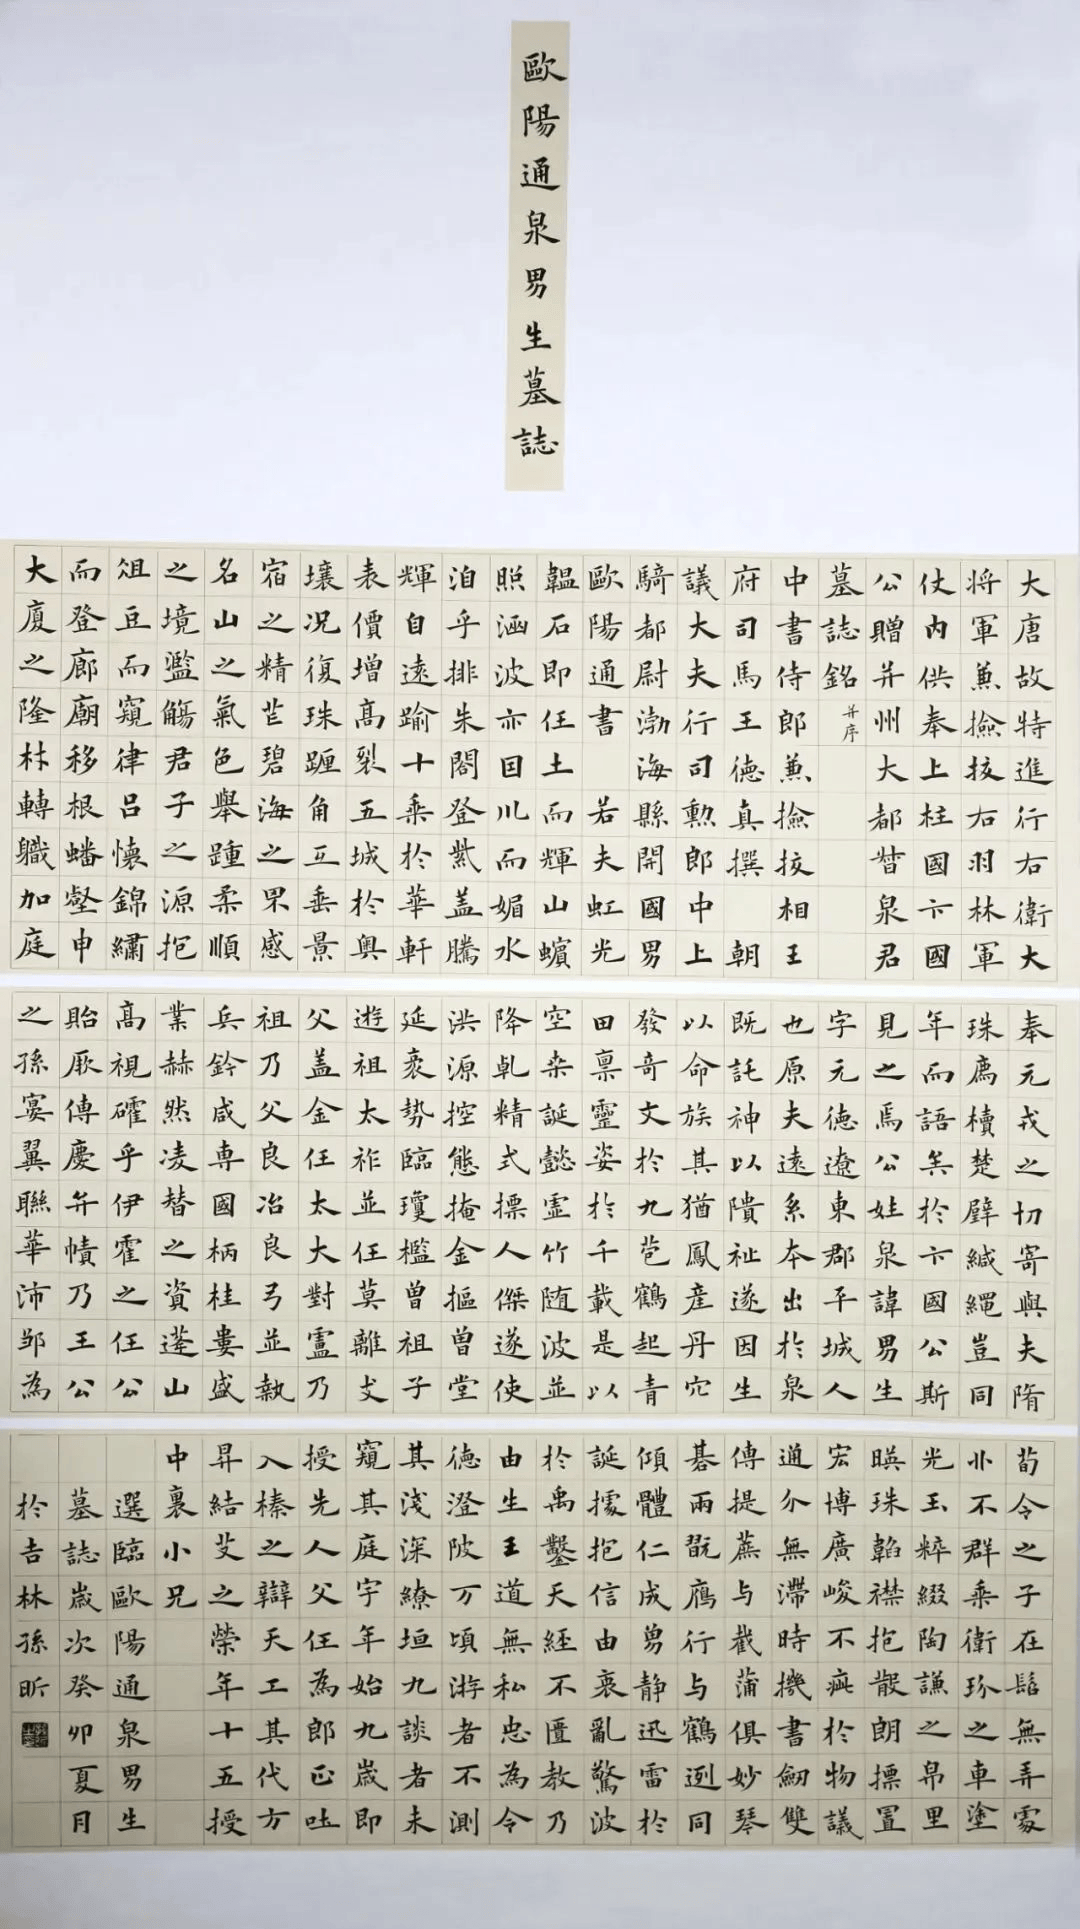 歐陽通泉男生墓誌
大唐故特進行右衛大
将軍兼撿挍右羽林軍
仗内供奉上柱國卞國
公贈并州大都督泉君
墓誌銘并序
中書侍郎兼撿挍相王
府司馬王德真撰 朝
議大夫行司勲郎中上
騎都尉渤海縣開國男
歐陽通書 若夫虹光
韞石即任土而輝山蠙
照涵波亦因川而媚水
洎乎排朱閣登紫盖騰
輝自遠踰十乘於華軒
表價增高裂五城於奥
壤况復珠躔角互垂景
宿之精芒碧海之杲感
名山之氣色舉踵柔順
之境濫觴君子之源抱
俎豆而窺律呂懷錦繡
而登廊廟移根蟠壑申
大廈之隆材轉職加庭
奉元戎之切寄與夫隋
珠薦櫝楚璧緘繩豈同
年而語矣於卞國公斯
見之焉公姓泉諱男生
字元德遼東郡平城人
也原夫遠系本出於泉
既託神以隤祉遂因生
以命族其猶鳳產丹穴
發奇文於九苞鶴起青
田禀靈姿於千載是以
空桑誕懿虛竹随波並
降乹精式摽人傑遂使
洪源控態掩金摳曾堂
延袤勢臨瓊檻曾祖子
遊祖太祚並任莫離支
父盖金任太大對盧乃
祖乃父良冶良弓並執
兵鈐咸専國柄桂婁盛
業赫然凌替之資蓬山
高視確乎伊霍之任公
貽厥傳慶弁幘乃王公
之孫宴翼聯華沛邹為
荀令之子在髫無弄處
丱不群乘衛玠之車塗
光玉粹綴陶謙之帛里
暎珠韜襟抱散朗摽置
宏博廣峻不疵於物議
通介無滯時機書劒雙
傳提蔗与截蒲俱妙琴
碁兩翫鴈行与鶴迾同
傾體仁成勇静迅雷於
誕據抱信由衷亂驚波
於禹鑿天經不匱教乃
由生王道無私忠為令
德澄陂万頃游者不測
其淺深繚垣九談者未
窺其庭宇年始九歲即
授先人父任為郎正吐
入榛之辯天工其代方
昇結艾之榮年十五授
中裏小兄
選臨歐陽通泉男生
墓誌歲次癸卯夏月
於吉林孫昕